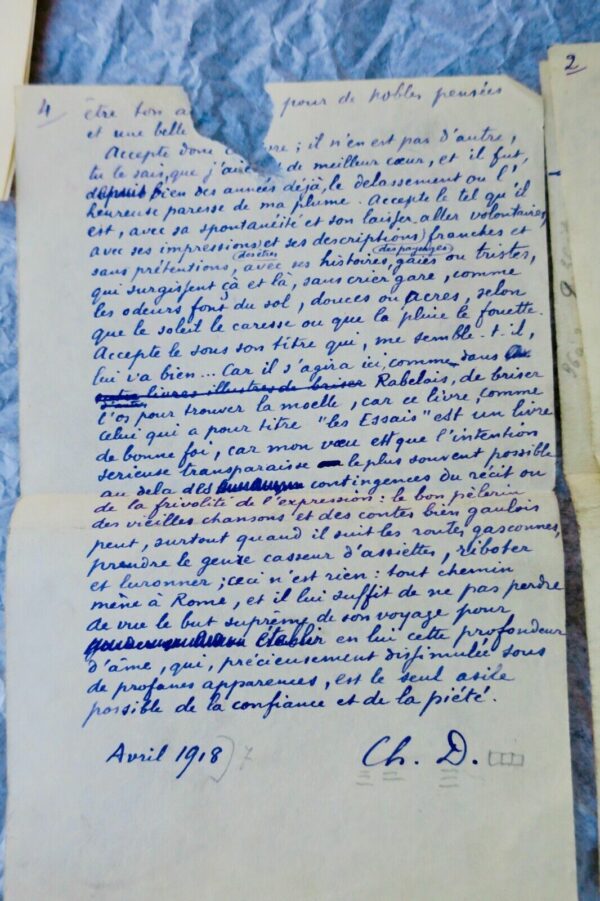 4
être bon a pour de nobles pensées
et une belle
Accepte donc re ; il n'en est pas d'autre,
tu le sais, que j'aie t de meilleur cœur, et il fut,
depuis bien des années déjà, le délassement ou l'
heureuse paresse de ma plume. Accepte le tel qu'il
est, avec sa spontanéité et son laisser aller volontaires,
avec ses impressions (des êtres) et ses descriptions (des paysages) franches et
sans prétentions, avec ses histoires, gaies ou tristes,
qui surgissent çà et là, sans crier gare, comme
les odeurs font du sol, douces ou âcres, selon
que le soleil le caresse ou que la pluie le fouette.
Accepte le sous son titre qui, me semble-t-il,
lui va bien... Car il s'agira ici, comme dans
livres illustres de briser Rabelais, de briser
l'os pour trouver la moelle, car ce livre, comme
celui qui a pour titre "les Essais" est un livre
de bonne foi, car mon vœu est que l'intention
serieuse transparaisse le plus souvent possible
au delà des contingences du récit ou
de la frivolité de l'expression : le bon pèlerin
des vieilles chansons et des contes bien gaulois
peut, surtout quand il suit les routes gasconnes,
prendre le genre casseur d'assiettes, riboter
et luronner ; ceci n'est rien : tout chemin
mène à Rome, et il lui suffit de ne pas perdre
de vue le but suprême de son voyage pour
établir en lui cette profondeur
d'âme, qui, précieusement dissimulée sous
de profanes apparences, est le seul asile
possible de la confiance et de la piété.
Avril 1918) 7
Ch. D.
2